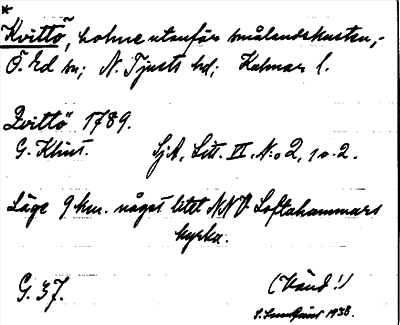 *
Kvittö, holme utanför smålandskusten,-
Ö. Ed sn; N. Tjusts hd; Kalmar l.
Qvittö 1789.
G. Klint. SjA, Litt. II. N:o 2, 1 o. 2.
Läge 9 km. något litet NNV Loftahammars
kyrka.
G. 37. (Vänd!)
1938.